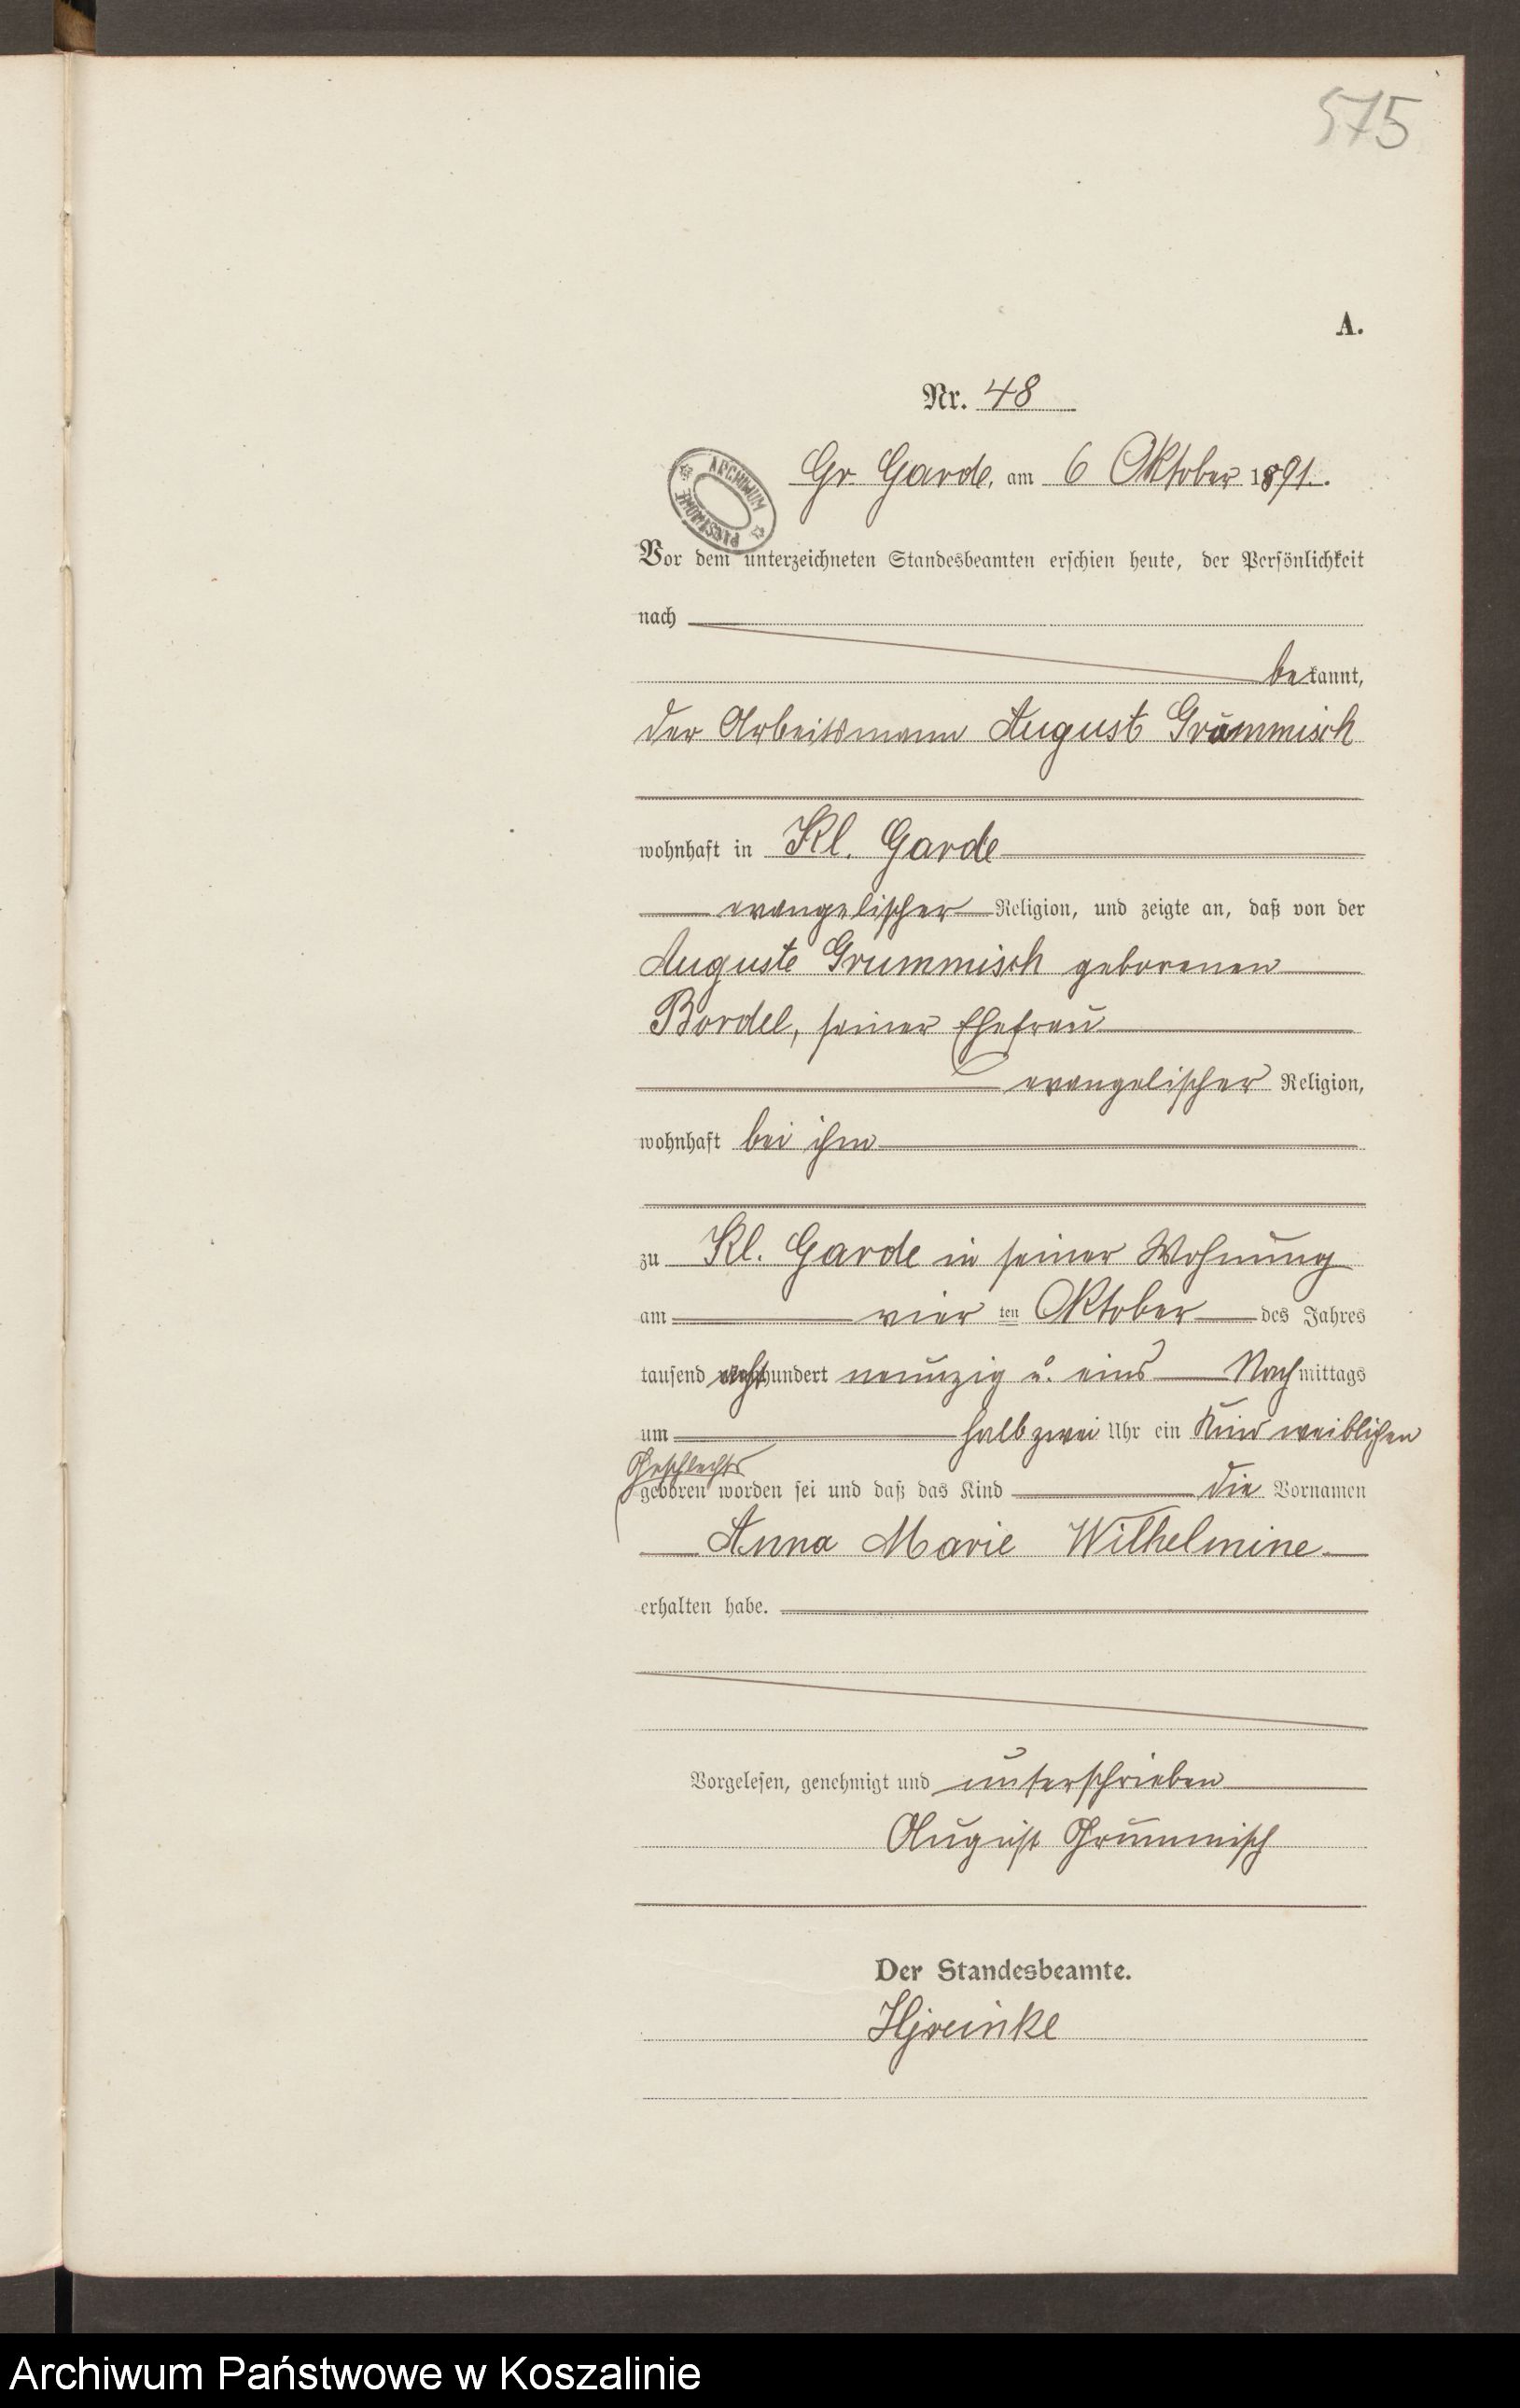 575
A.
Nr. 48
Gr. Garde, am 6 Oktober 1891.
ARCHIWUM PAŃSTWOWE
Vor dem unterzeichneten Standesbeamten erschien heute, der Persönlichkeit
nach
bekannt,
der Arbeitsmann August Grummisch
wohnhaft in Kl. Garde
evangelischer Religion, und zeigte an, daß von der
Auguste Grummisch geborenen
Bordel, seiner Ehefrau
evangelischer Religion,
wohnhaft bei ihm
zu Kl. Garde in seiner Wohnung
am vier ten Oktober des Jahres
tausend achthundert neunzig u. eins Nachmittags
um halb zwei Uhr ein Kind weiblichen
Geschlechts
geboren worden sei und daß das Kind die Vornamen
Anna Marie Wilhelmine
erhalten habe.
Vorgelesen, genehmigt und unterschrieben
August Grummisch
Der Standesbeamte.
Archiwum Państwowe w Koszalinie